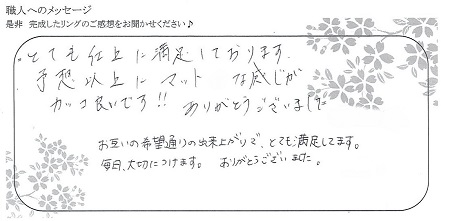 職人へのメッセージ
是非 完成したリングのご感想をお聞かせください♪
とても仕上に満足しております。
予想以上にマット な感じが
カッコ良いです!! ありがとうございました
お互いの希望通りの出来上がりで、とても満足してます。
毎日、大切につけます。 ありがとうございました。